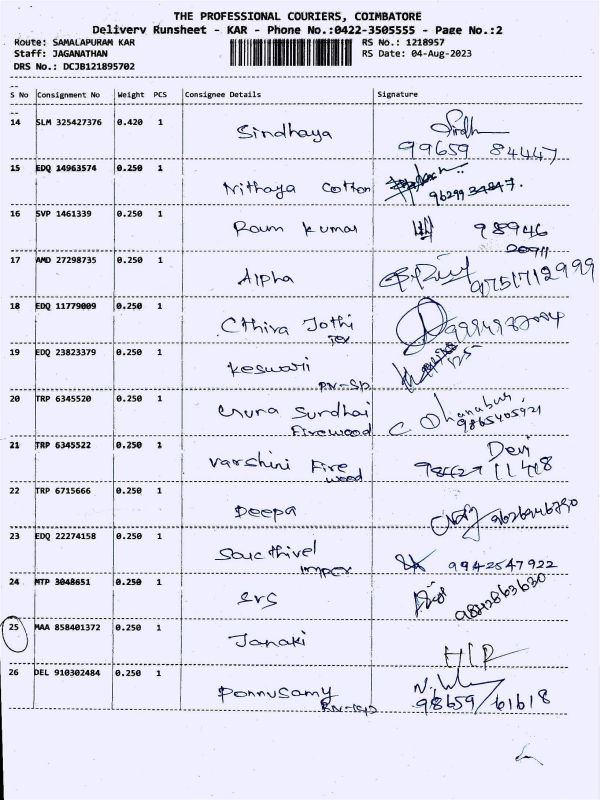 THE PROFESSIONAL COURIERS, COIMBATORE
Delivery Runsheet - KAR - Phone No.:0422-3505555 - Page No.:2
Route: SAMALAPURAM KAR RS No.: 1218957
Staff: JAGANATHAN RS Date: 04-Aug-2023
DRS No.: DCJB121895702
S No Consignment No Weight PCS Consignee Details Signature
14 SLM 325427376 0.420 1 Sindhaya
99659 84447
15 EDQ 14963574 0.250 1 Nithaya Cotton
16 SVP 1461339 0.250 1 Ram Kumar 98946
20911
17 AMD 27298735 0.250 1 Alpha 9751712999
18 EDQ 11779009 0.250 1 Jothi
Tex
19 EDQ 23823379 0.250 1 Keswari
20 TRP 6345520 0.250 1 Guru Surdhai C Dhanabur
Firewood 9865405921
21 TRP 6345522 0.250 1 Varshini Fire Devi
wood 98427 11418
22 TRP 6715666 0.250 1 Deepa
23 EDQ 22274158 0.250 1 Sakthivel
Impex 9942547922
24 MTP 3048651 0.250 1 SVS 9842863630
25 MAA 858401372 0.250 1 Janaki
26 DEL 910302484 0.250 1 Ponnusamy
98659/61618